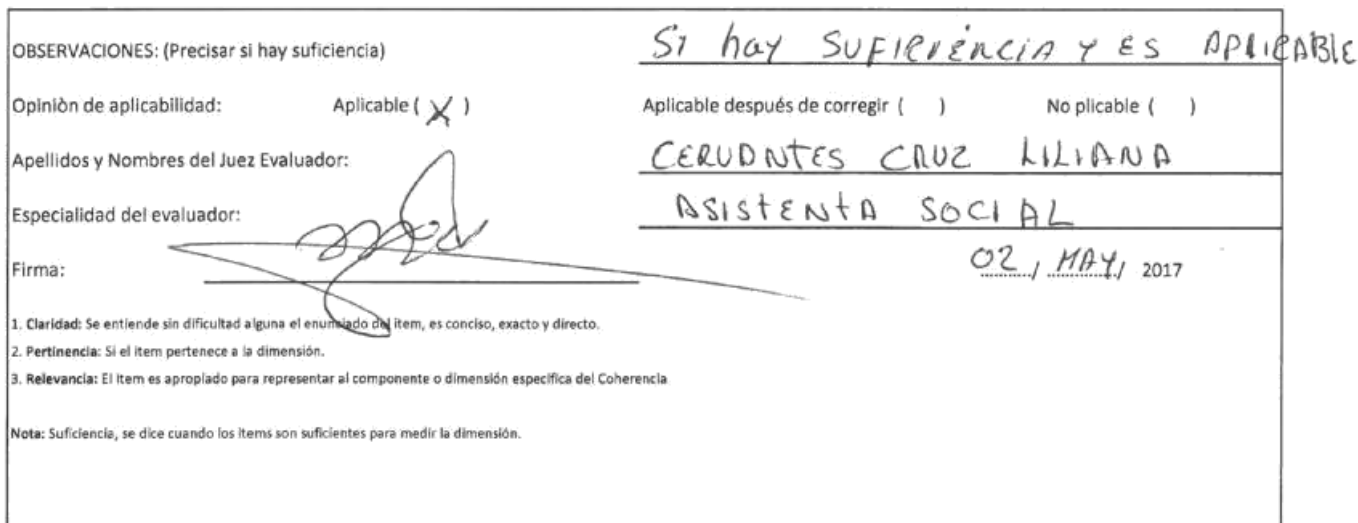 OBSERVACIONES: (Precisar si hay suficiencia) SI hay SUFICIENCIA Y ES APLICABLE
Opiniòn de aplicabilidad: Aplicable ( X ) Aplicable después de corregir ( ) No plicable ( )
Apellidos y Nombres del Juez Evaluador: CERVANTES CRUZ LILIANA
Especialidad del evaluador: ASISTENTA SOCIAL
Firma: 02 / MAY / 2017
1. Claridad: Se entiende sin dificultad alguna el enunciado del item, es conciso, exacto y directo.
2. Pertinencia: Si el item pertenece a la dimensión.
3. Relevancia: El item es apropiado para representar al componente o dimensión especifica del Coherencia
Nota: Suficiencia, se dice cuando los items son suficientes para medir la dimensión.